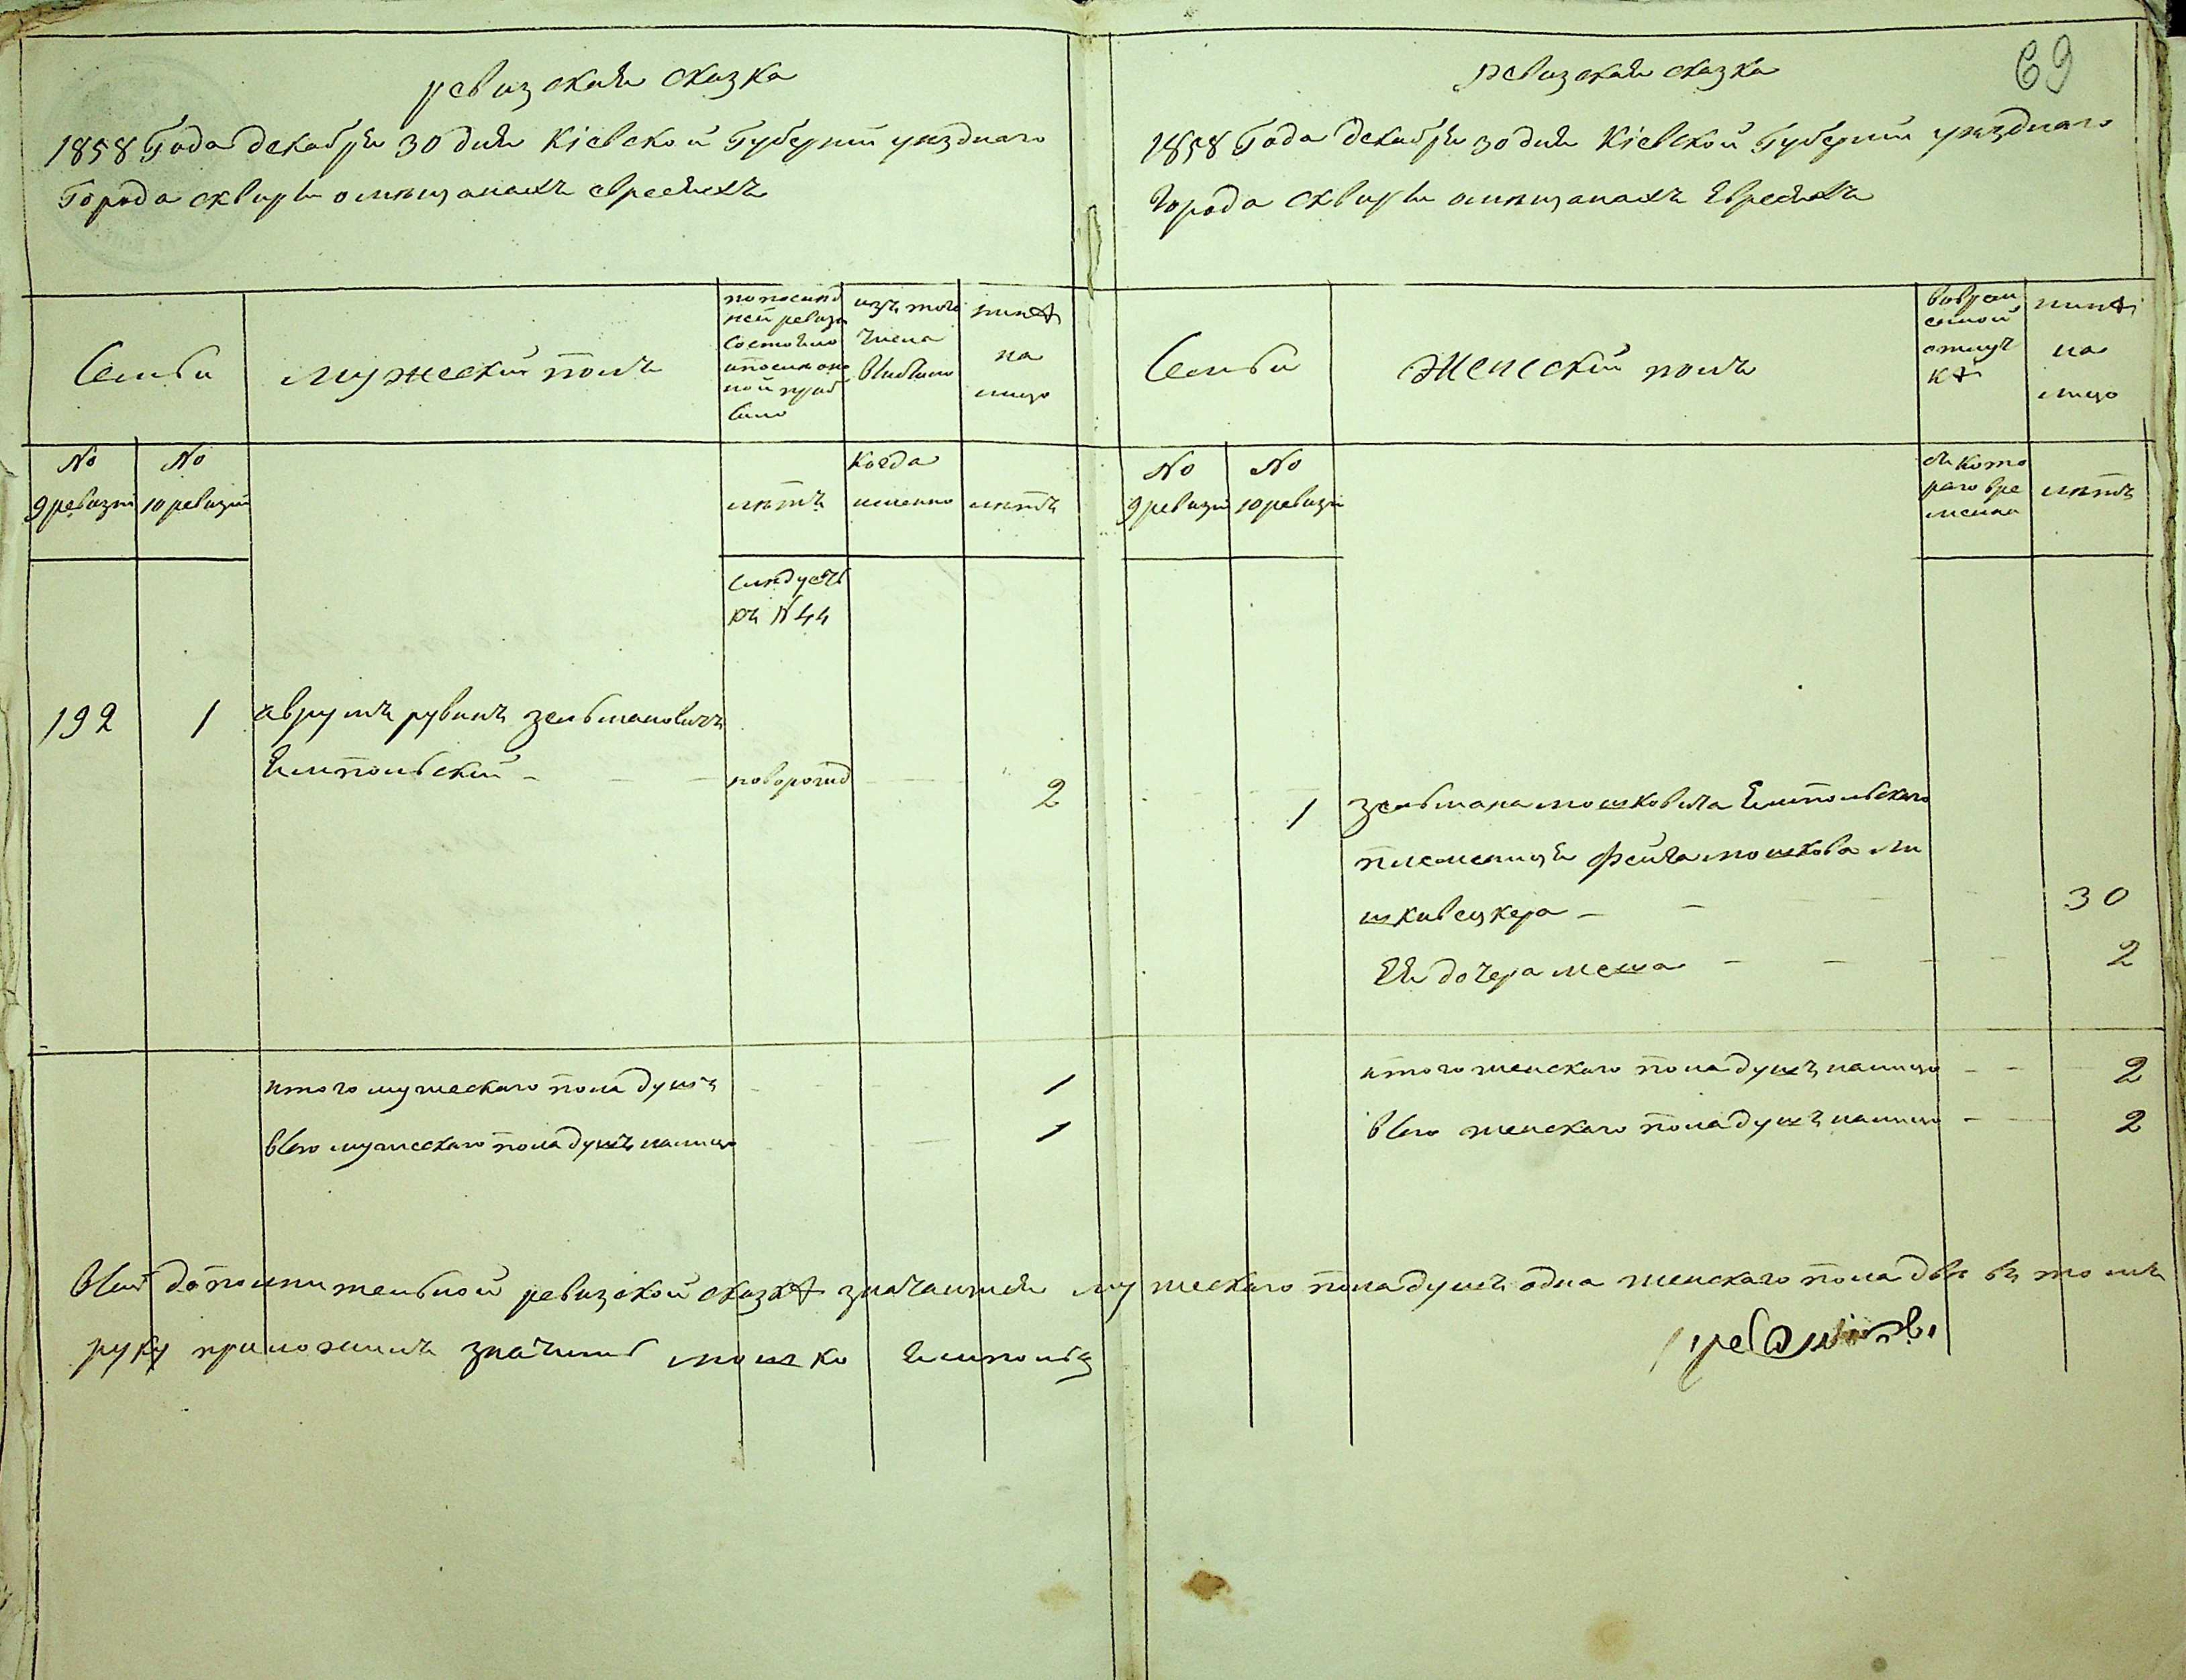 69
ревизская сказка
1858 Года декабря 30 дня Кіевской Губерніи уѣзднаго
Города сквиры о мѣщанахъ евреяхъ
Семьи
мужескій полъ
по послѣд
ней ревизи
состояло
и послѣ оно
ной приб
ыло
изъ того
числа
выбыло
нинѣ
на
лицо
№
9 ревизіи
№
10 ревизіи
лѣтъ
когда
именно
лѣтъ
слѣдуетъ
къ № 44
192
1
аврумъ рувинъ зельмановичъ
Ямпольскій
новорожд
2
итого мужескаго пола душъ
1
всего мужескаго пола душъ налицо
1
ревизская сказка
1858 Года декабря 30 дня Кіевской Губерніи уѣзднаго
Города сквиры о мѣщанахъ Евреяхъ
Семьи
Женскій полъ
вовремен
енной
отлуч
кѣ
нинѣ
на
лицо
№
9 ревизіи
№
10 ревизіи
съ кото
раго вре
мени
лѣтъ
1
зельмана мошковича Ямпольскаго
племеница Фейга мошкова ли
шкивецкера
30
Ея дочера меша
2
итого женскаго пола душъ налицо
2
всего женскаго пола душъ налицо
2
всей дополнительной ревизской сказкѣ значащимся мужескаго пола душъ одна женскаго пола двѣ въ томъ
руку приложилъ значилсь мошко Ямпольц